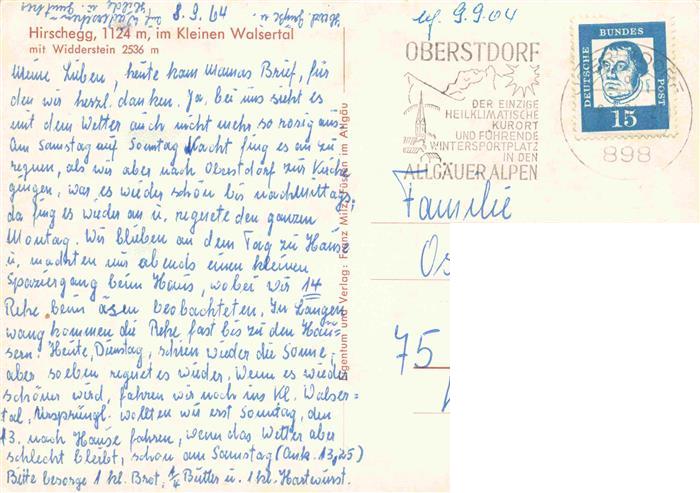 8.9.64
Hirschegg, 1124 m, im Kleinen Walsertal
mit Widderstein 2536 m
Meine Lieben, heute kam Mamas Brief, für
den wir herzl. danken. Ja, bei uns sieht es
mit dem Wetter auch nicht mehr so rosig aus.
Am Samstag auf Sonntag Nacht fing es an zu
regnen, als wir aber nach Oberstdorf zur Kirche
gingen, war es wieder schön bis nachmittags,
da fing es wieder an u. regnete den ganzen
Montag. Wir blieben an dem Tag zu Hause
u. machten nur abends einen kleinen
Spaziergang beim Haus, wobei wir 14
Rehe beim äsen beobachteten. In Langen-
wang kommen die Rehe fast bis zu den Häu-
sern. Heute, Dienstag, schien wieder die Sonne,
aber soeben regnet es wieder. Wenn es wieder
schöner wird, fahren wir noch ins Kl. Walser-
tal. Ursprüngl. wollten wir erst Sonntag, den
13. nach Hause fahren, wenn das Wetter aber
schlecht bleibt, schon am Samstag (Ank. 13,25)
Bitte besorge 1 kl. Brot, 1/4 Butter u. 1 kl. Hartwurst.
Herzl. Grüße u.
Hilde u.
Eigentum und Verlag: Franz Milz, Füssen im Allgäu
9.9.64
OBERSTDORF
DER EINZIGE
HEILKLIMATISCHE
KURORT
UND FÜHRENDE
WINTERSPORTPLATZ
IN DEN
ALLGÄUER ALPEN
DEUTSCHE BUNDESPOST
15
898
Familie
Os
75